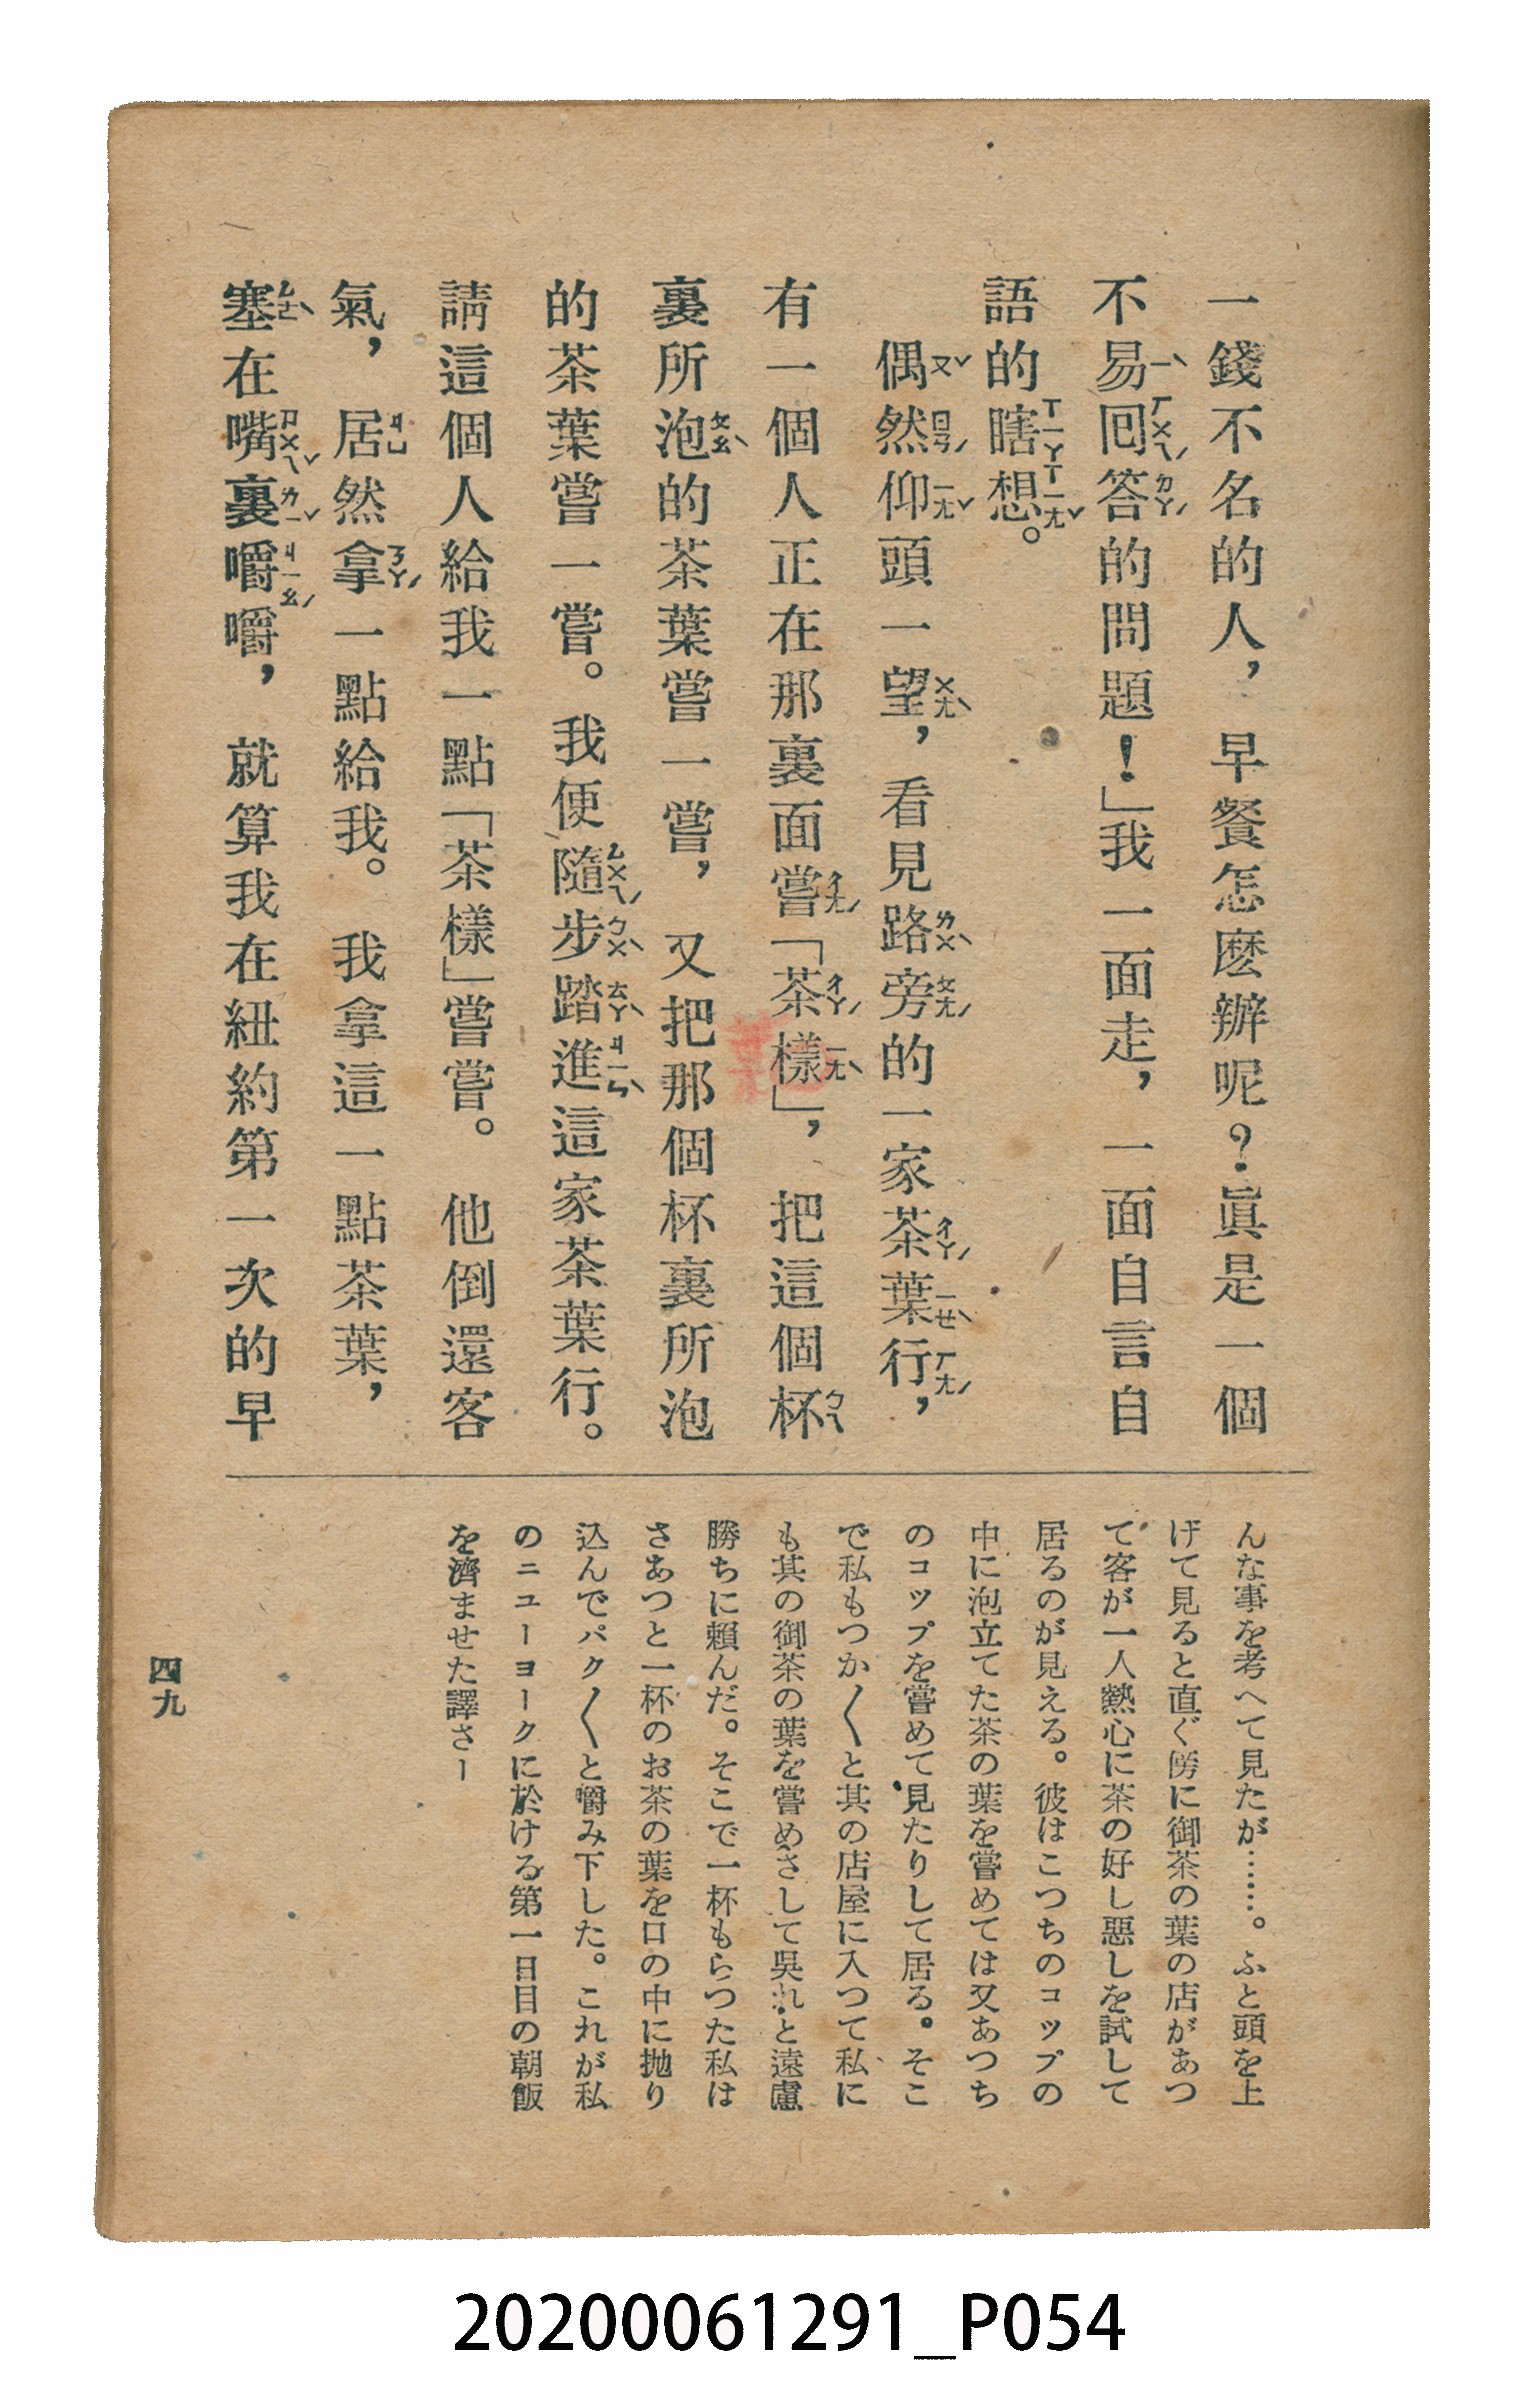 一錢不名的人，早餐怎麽辦呢？眞是一個
不易回答的問題！」我一面走，一面自言自
語的瞎想。
偶然仰頭一望，看見路旁的一家茶葉行，
有一個人正在那裏面嘗「茶樣」，把這個杯
裏所泡的茶葉嘗一嘗，又把那個杯裏所泡
的茶葉嘗一嘗。我便隨步踏進這家茶葉行。
請這個人給我一點「茶樣」嘗嘗。他倒還客
氣，居然拿一點給我。我拿這一點茶葉，
塞在嘴裏嚼嚼，就算我在紐約第一次的早
んな事を考へて見たが……。ふと頭を上
げて見ると直ぐ傍に御茶の葉の店があつ
て客が一人熱心に茶の好し惡しを試して
居るのが見える。彼はこつちのコップの
中に泡立てた茶の葉を嘗めては又あつち
のコップを嘗めて見たりして居る。そこ
で私もつか〱と其の店屋に入つて私に
も其の御茶の葉を嘗めさして吳れと遠慮
勝ちに賴んだ。そこで一杯もらつた私は
さあつと一杯のお茶の葉を口の中に抛り
込んでパク〱と嚼み下した。これが私
のニューヨークに於ける第一日目の朝飯
を濟ませた譯さー
四九
20200061291_P054